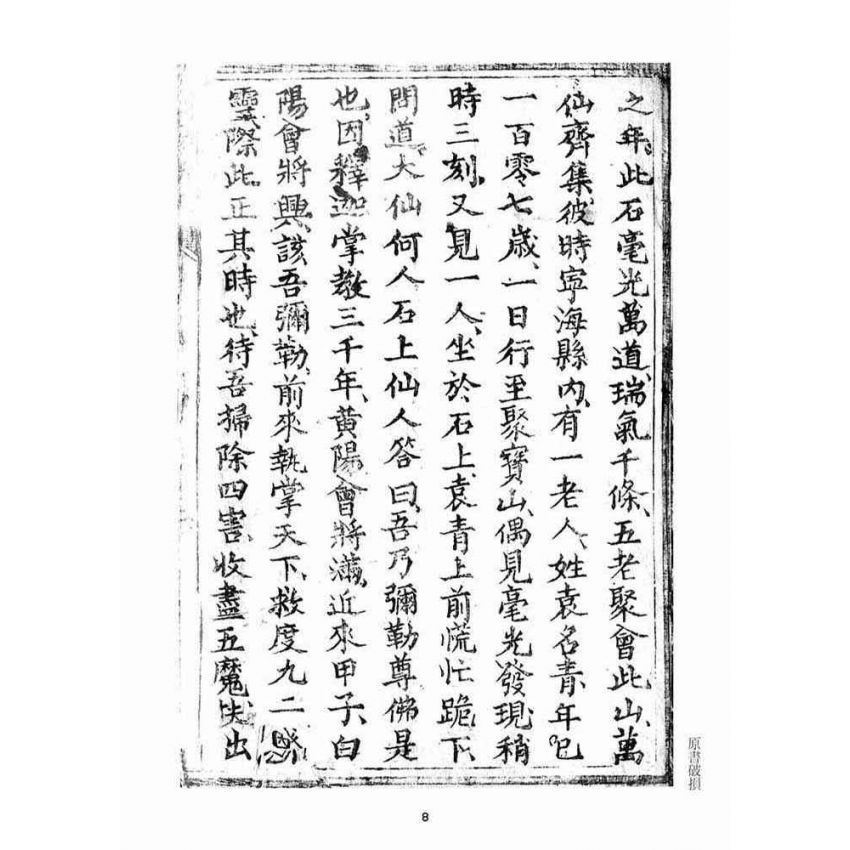 之年、此石毫光萬道、瑞氣千條、五老聚會此山、萬
仙齊集、彼時寧海縣內、有一老人、姓袁名青、年已
一百零七歲、一日行至聚寶山、偶見毫光發現、稍
時三刻、又見一人、坐於石上、袁青上前慌忙跪下、
問道大仙何人石上仙人答曰、吾乃彌勒尊佛是
也、因釋迦掌教三千年、黃陽會將滿、近來甲子、白
陽會將興、該吾彌勒、前來執掌天下、救度九二
靈際此、正其時也、待吾掃除四害、收盡五魔、出
原書破損
8